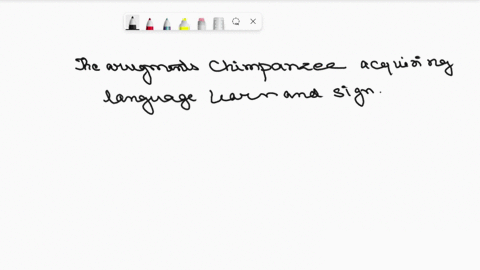 The arugments Chimpanzee acquising
language learn and sign.